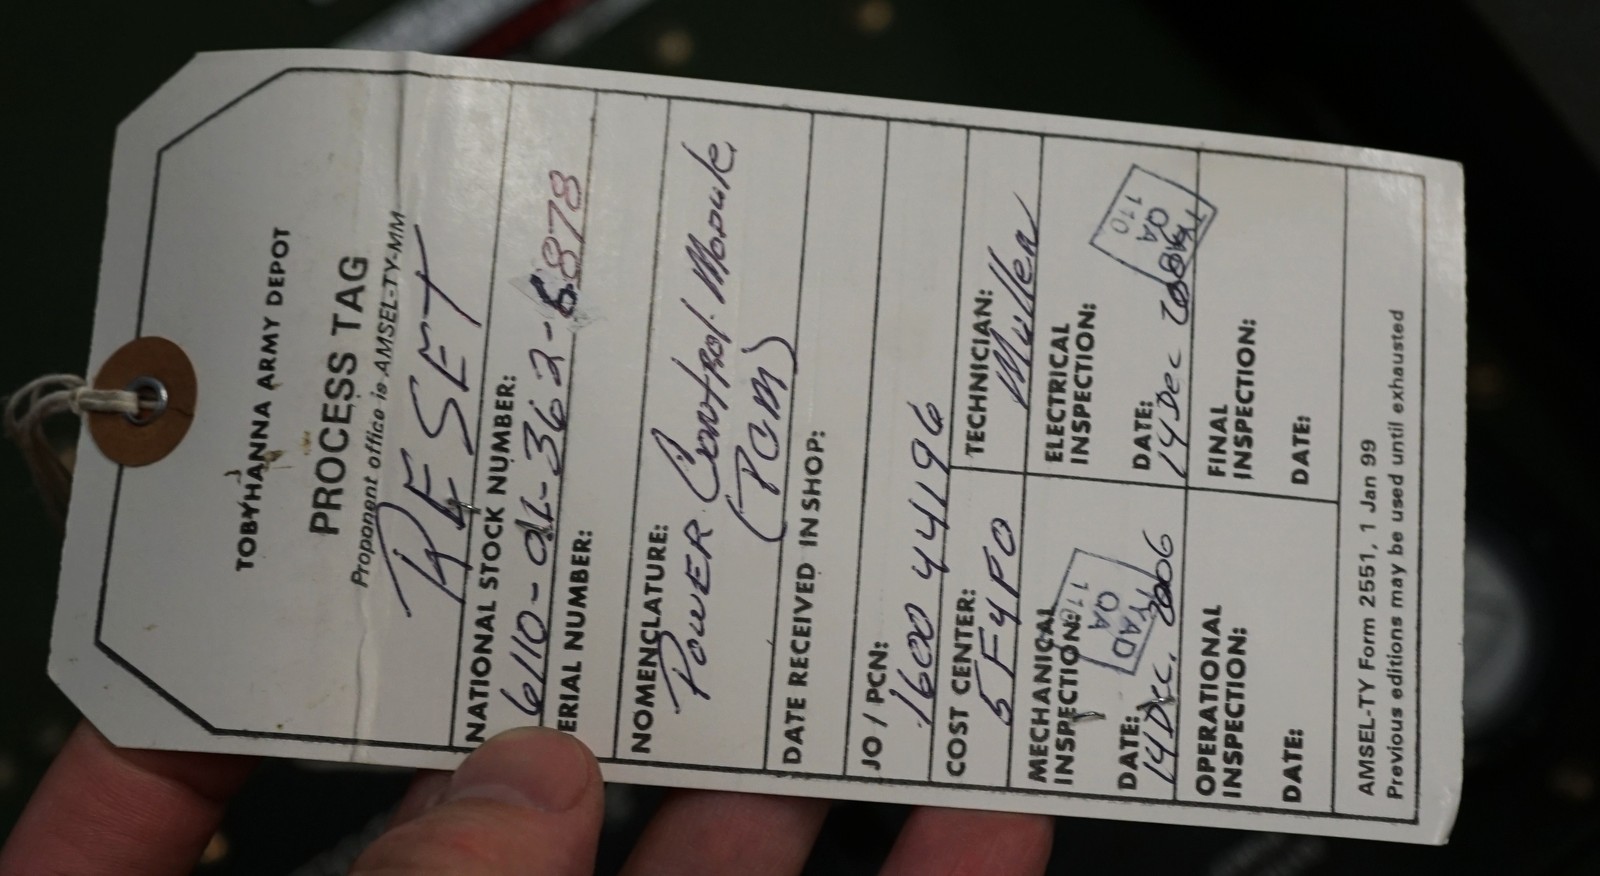 TOBYHANNA ARMY DEPOT
PROCESS TAG
Proponent office is AMSEL-TY-MM
RESET
NATIONAL STOCK NUMBER:
6110-01-362-6878
ERIAL NUMBER:
NOMENCLATURE:
POWER Control Module
(PCM)
DATE RECEIVED IN SHOP:
JO / PCN:
1600 44196
COST CENTER:
5F4P0
TECHNICIAN:
Mullen
MECHANICAL
INSPECTION:
TYAD
QA
110
DATE:
14 Dec. 2006
ELECTRICAL
INSPECTION:
TYAD
QA
110
DATE:
14 Dec
OPERATIONAL
INSPECTION:
DATE:
FINAL
INSPECTION:
DATE:
AMSEL-TY Form 2551, 1 Jan 99
Previous editions may be used until exhausted